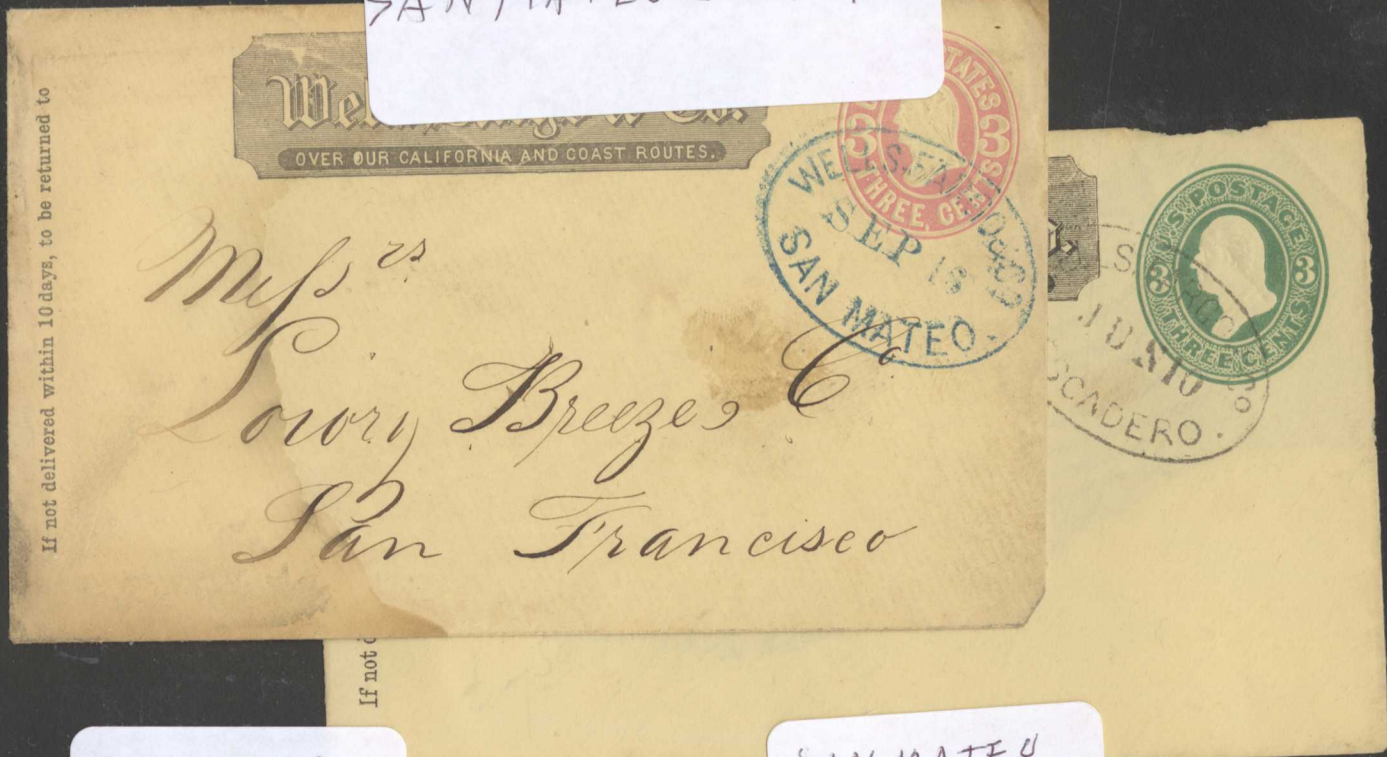 SAN MATEO
If not delivered within 10 days, to be returned to
Wells, Fargo & Co.
OVER OUR CALIFORNIA AND COAST ROUTES.
STATES
3 3
THREE CENTS
WELLS, FARGO & CO
SEP 16
SAN MATEO.
Messrs
Lowry Breeze & Co
San Francisco
U.S. POSTAGE
3 3
THREE CENTS
JUN 10
SCADERO.
If not
SAN MATEO